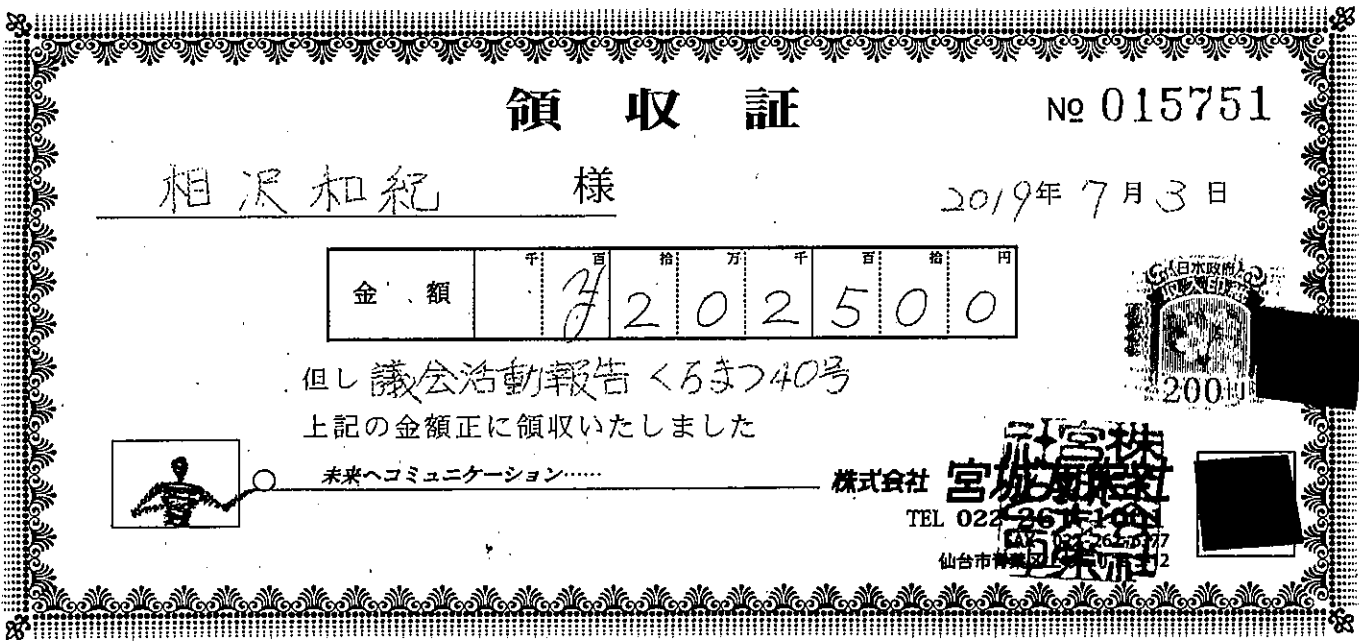 領収証
№ 015751
相沢和紀 様
2019年 7月 3日
千 百 拾 万 千 百 拾 円
金額 ¥202500
日本政府
200円
但し 議会活動報告 くろまつ40号
上記の金額正に領収いたしました
未来へコミュニケーション……
株式会社 宮城
TEL 022
仙台市青葉区